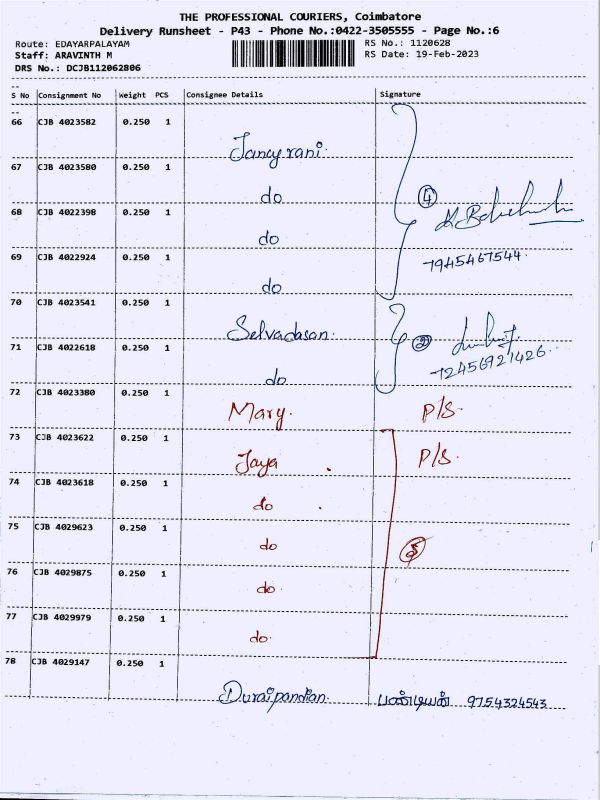 THE PROFESSIONAL COURIERS, Coimbatore
Delivery Runsheet - P43 - Phone No.:0422-3505555 - Page No.:6
Route: EDAYARPALAYAM
RS No.: 1120628
Staff: ARAVINTH M
RS Date: 19-Feb-2023
DRS No.: DCJB112062806
S No Consignment No Weight PCS Consignee Details Signature
66 CJB 4023582 0.250 1
Jancyrani
67 CJB 4023580 0.250 1
do
68 CJB 4022398 0.250 1
④
do
69 CJB 4022924 0.250 1
7945467544
do
70 CJB 4023541 0.250 1
Selvadasan.
71 CJB 4022618 0.250 1
②
72456921426
do
72 CJB 4023380 0.250 1
Mary. P/S
73 CJB 4023622 0.250 1
Jaya P/S
74 CJB 4023618 0.250 1
do
75 CJB 4029623 0.250 1
do
⑤
76 CJB 4029875 0.250 1
do
77 CJB 4029979 0.250 1
do
78 CJB 4029147 0.250 1
Duraipandian பண்டியன் 9754324543